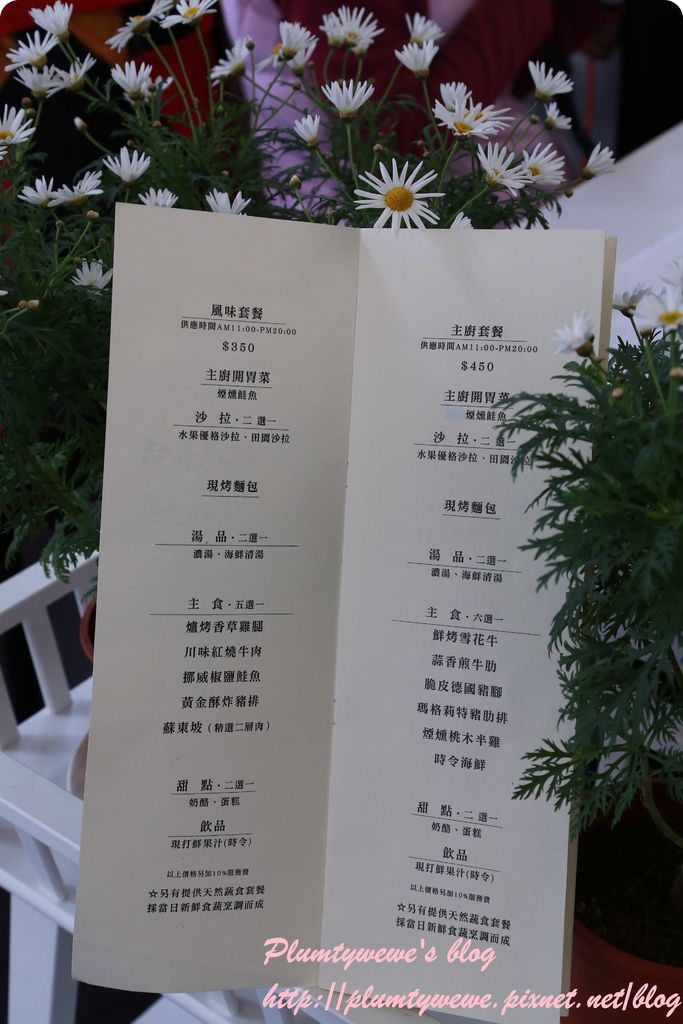 風味套餐
供應時間AM11:00-PM20:00
$350
主廚開胃菜
煙燻鮭魚
沙 拉·二選一
水果優格沙拉、田園沙拉
現烤麵包
湯 品·二選一
濃湯、海鮮清湯
主 食·五選一
爐烤香草雞腿
川味紅燒牛肉
挪威椒鹽鮭魚
黃金酥炸豬排
蘇東坡(精選二層肉)
甜 點·二選一
奶酪、蛋糕
飲品
現打鮮果汁(時令)
以上價格另加10%服務費
☆另有提供天然蔬食套餐
採當日新鮮食蔬烹調而成
主廚套餐
供應時間AM11:00-PM20:00
$450
主廚開胃菜
煙燻鮭魚
沙 拉·二選一
水果優格沙拉、田園沙拉
現烤麵包
湯 品·二選一
濃湯、海鮮清湯
主 食·六選一
鮮烤雪花牛
蒜香煎牛肋
脆皮德國豬腳
瑪格莉特豬肋排
煙燻桃木半雞
時令海鮮
甜 點·二選一
奶酪、蛋糕
飲品
現打鮮果汁(時令)
以上價格另加10%服務費
☆另有提供天然蔬食套餐
採當日新鮮食蔬烹調而成
Plumtywewe's blog
http://plumtywewe.pixnet.net/blog